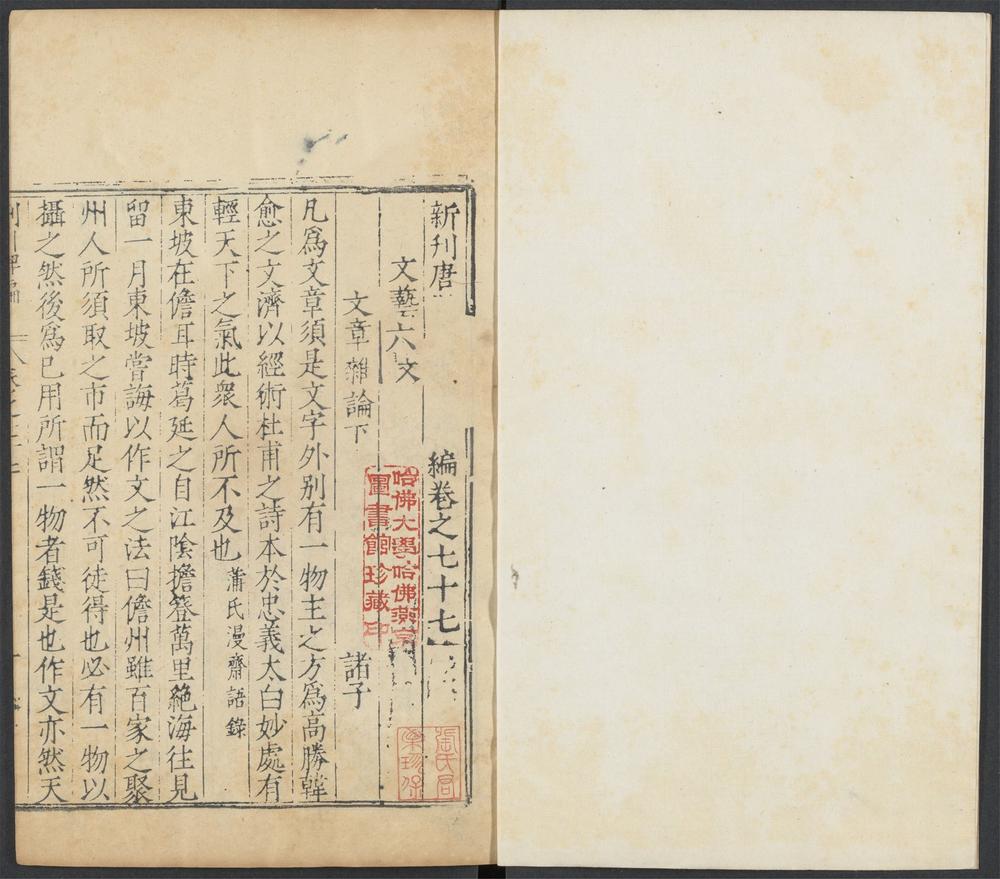 新刊唐
編卷之七十七
文藝六文
文章雜論下
諸子
凡爲文章須是文字外别有一物主之方爲高勝韓
愈之文濟以經術杜甫之詩本於忠義太白妙處有
輕天下之氣此衆人所不及也蒲氏漫齋語錄
東坡在儋耳時葛延之自江陰擔簦萬里絶海往見
留一月東坡嘗誨以作文之法曰儋州雖百家之聚
州人所須取之市而足然不可徒得也必有一物以
攝之然後爲已用所謂一物者錢是也作文亦然天
哈佛大學哈佛燕京
圖書館珍藏印